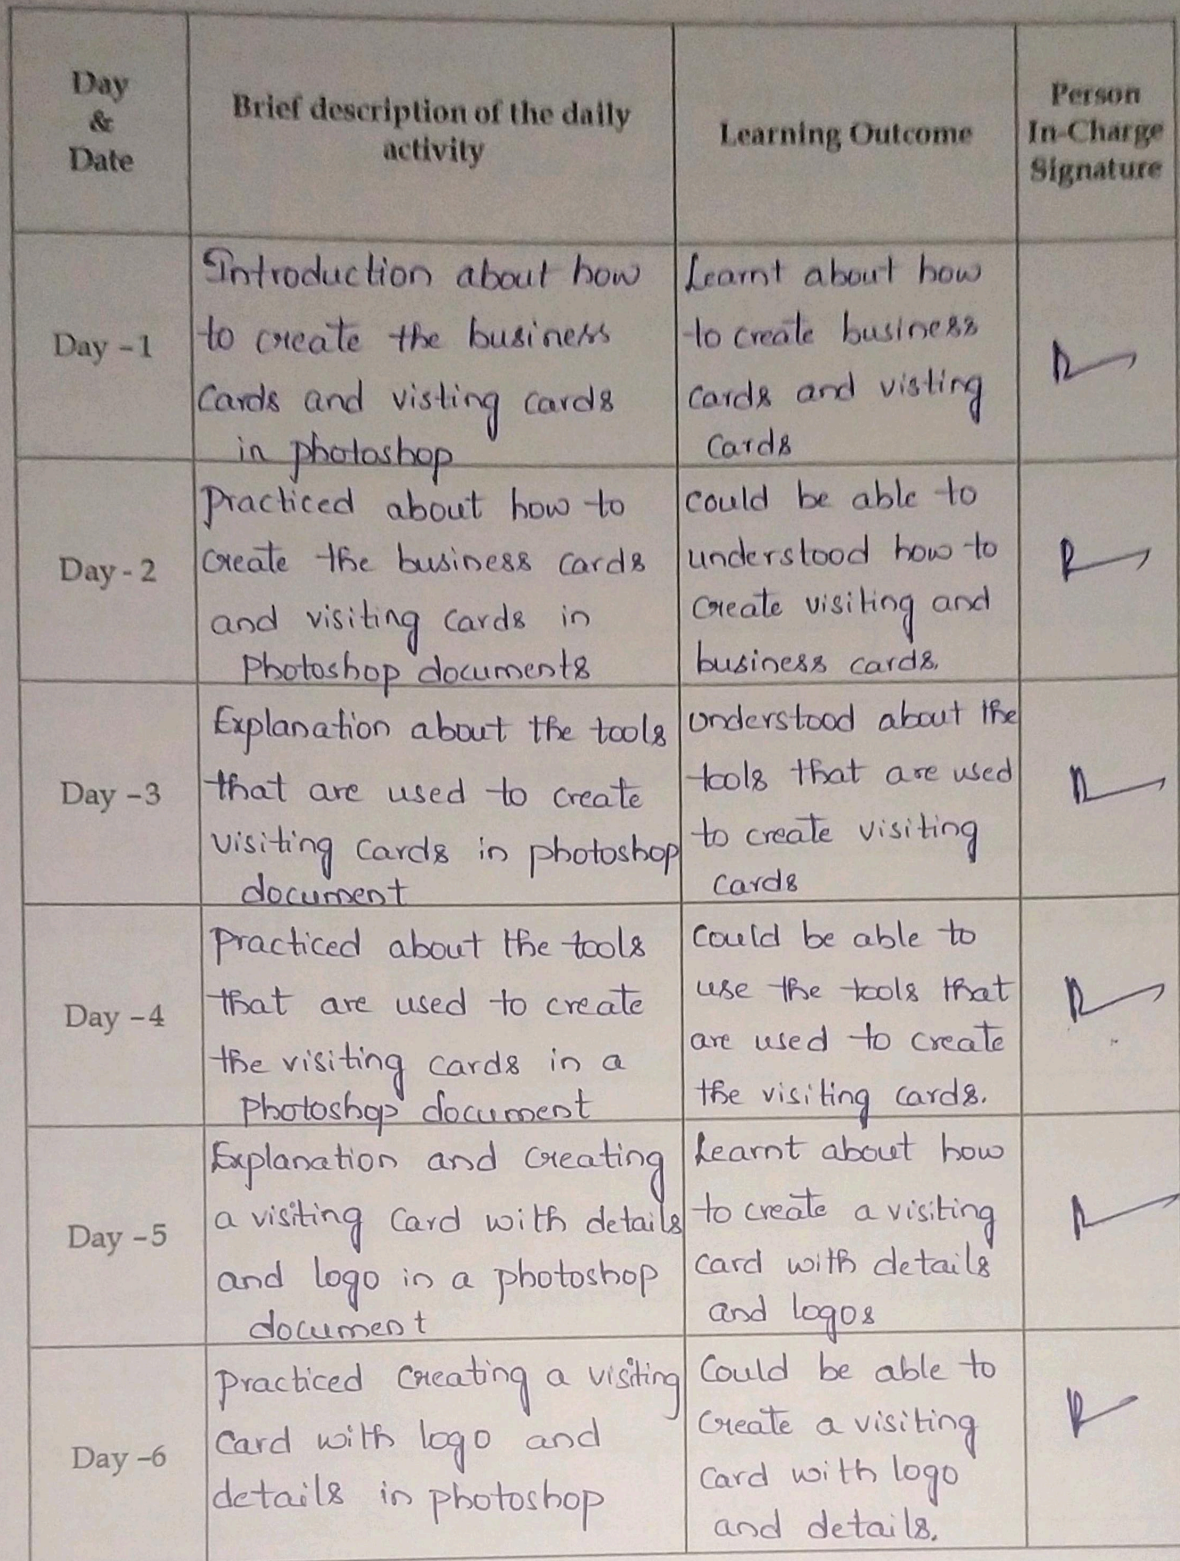 Day
&
Date
Brief description of the daily
activity
Learning Outcome
Person
In-Charge
Signature
Day - 1
Introduction about how
to create the business
Cards and visting cards
in photoshop
Learnt about how
to create business
cards and visting
Cards
Day - 2
Practiced about how to
create the business cards
and visiting cards in
Photoshop documents
could be able to
understood how to
create visiting and
business cards.
Day - 3
Explanation about the tools
that are used to create
visiting cards in photoshop
document
understood about the
tools that are used
to create visiting
cards
Day - 4
Practiced about the tools
that are used to create
the visiting cards in a
Photoshop document
Could be able to
use the tools that
are used to create
the visiting cards.
Day - 5
Explanation and creating
a visiting card with details
and logo in a photoshop
document
Learnt about how
to create a visiting
card with details
and logos
Day - 6
Practiced creating a visiting
Card with logo and
details in photoshop
Could be able to
create a visiting
card with logo
and details.